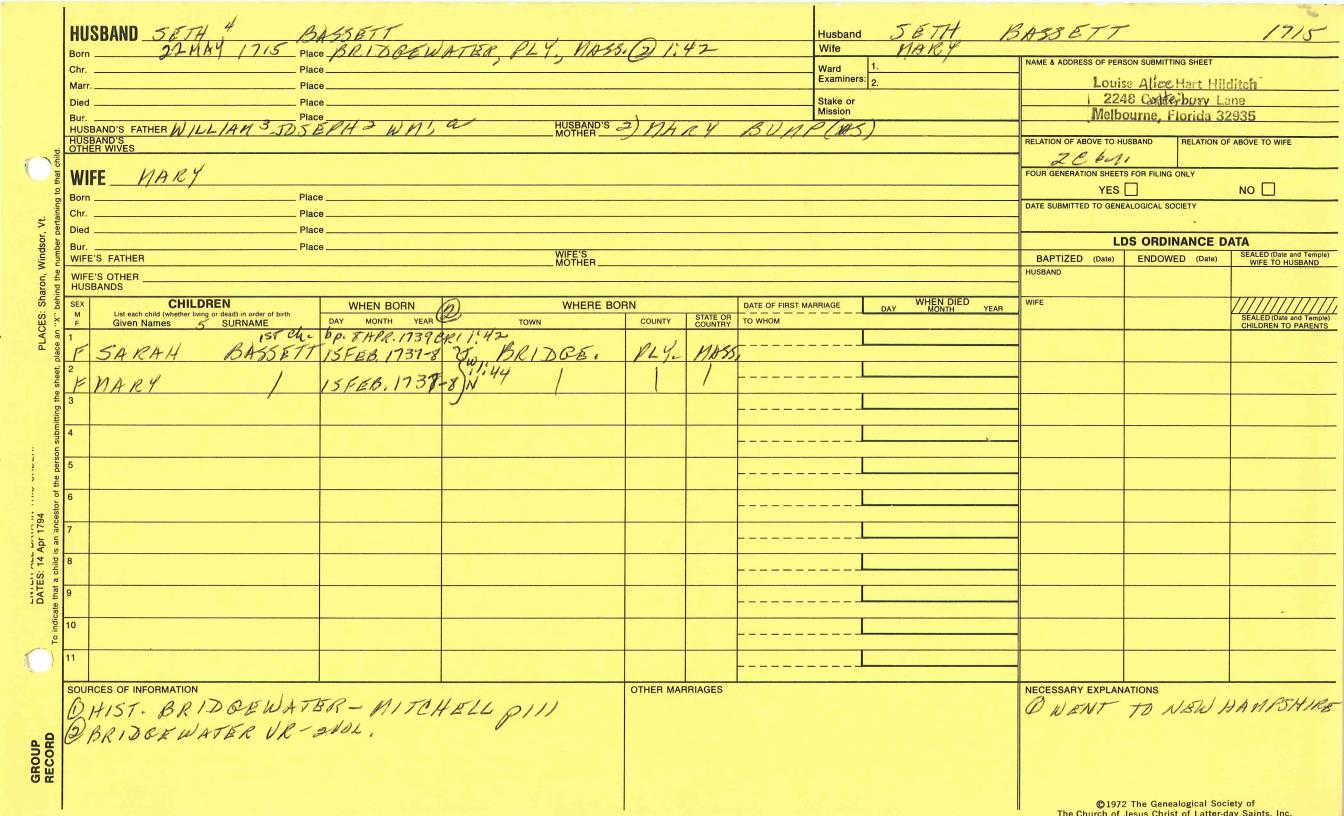 HUSBAND SETH 4 BASSETT
Born 22 MAY 1715 Place BRIDGEWATER, PLY, MASS. ② 1:42
Chr. Place
Marr. Place
Died Place
Bur. Place
HUSBAND'S FATHER WILLIAM 3 JOSEPH 2 WM.
HUSBAND'S MOTHER 2) MARY BUMP
HUSBAND'S OTHER WIVES
Husband SETH BASSETT 1715
Wife MARY
Ward Examiners: 1.
2.
Stake or Mission
NAME & ADDRESS OF PERSON SUBMITTING SHEET
Louise Alice Hart Hilditch
2248 Canterbury Lane
Melbourne, Florida 32935
RELATION OF ABOVE TO HUSBAND RELATION OF ABOVE TO WIFE
2C
FOUR GENERATION SHEETS FOR FILING ONLY
YES NO
DATE SUBMITTED TO GENEALOGICAL SOCIETY
WIFE MARY
Born Place
Chr. Place
Died Place
Bur. Place
WIFE'S FATHER WIFE'S MOTHER
WIFE'S OTHER HUSBANDS
LDS ORDINANCE DATA
BAPTIZED (Date) ENDOWED (Date) SEALED (Date and Temple) WIFE TO HUSBAND
HUSBAND
WIFE
SEALED (Date and Temple) CHILDREN TO PARENTS
SEX M F
CHILDREN
List each child (whether living or dead) in order of birth
Given Names 5 SURNAME
WHEN BORN ②
DAY MONTH YEAR
WHERE BORN
TOWN COUNTY STATE OR COUNTRY
DATE OF FIRST MARRIAGE
TO WHOM
WHEN DIED
DAY MONTH YEAR
1 1st ch. bp. 8 APR. 1739 CR1 1:42
F SARAH BASSETT 15 FEB. 1737-8 BRIDGE. PLY. MASS.
2 1:44
F MARY 15 FEB. 1737-8
3
4
5
6
7
8
9
10
11
SOURCES OF INFORMATION
① HIST. BRIDGEWATER - MITCHELL p111
② BRIDGEWATER VR - 2vol.
OTHER MARRIAGES
NECESSARY EXPLANATIONS
① WENT TO NEW HAMPSHIRE
©1972 The Genealogical Society of
The Church of Jesus Christ of Latter-day Saints, Inc.
PLACES: Sharon, Windsor, Vt.
DATES: 14 Apr 1794
To indicate that a child is an ancestor of the person submitting the sheet, place an "X" behind the number pertaining to that child.
GROUP RECORD